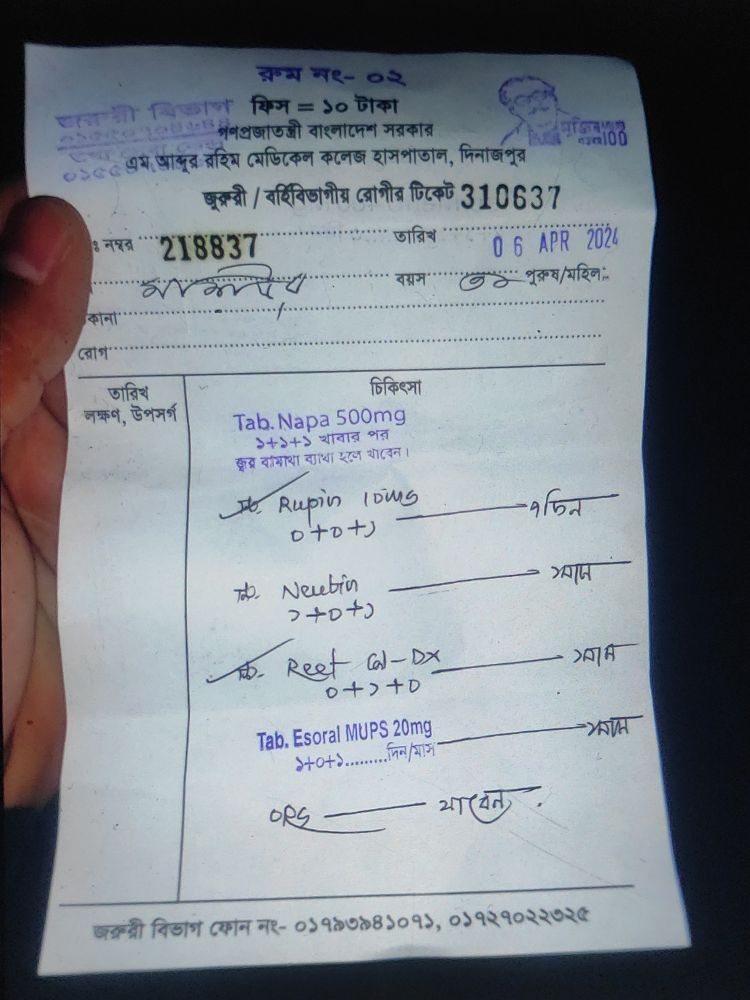 রুম নং- ০২
জরুরী বিভাগ
ফিস = ১০ টাকা
গনপ্রজাতন্ত্রী বাংলাদেশ সরকার
এম আব্দুর রহিম মেডিকেল কলেজ হাসপাতাল, দিনাজপুর
জরুরী / বর্হিবিভাগীয় রোগীর টিকেট 310637
মুজিব 100
ঃ নম্বর 218837 তারিখ 06 APR 2024
বয়স ৩১ পুরুষ/মহিলা
কানা
রোগ
তারিখ
লক্ষণ, উপসর্গ
চিকিৎসা
Tab. Napa 500mg
১+১+১ খাবার পর
জ্বর বা মাথা ব্যাথা হলে খাবেন।
Tab. Rupin 10mg ৭ দিন
0+0+১
Tab. Neubin ১ মাস
১+0+১
Tab. Reet Cal-DX ১ মাস
0+১+0
Tab. Esoral MUPS 20mg ১ মাস
১+০+১.........দিন/মাস
ORS খাবেন.
জরুরী বিভাগ ফোন নং- ০১৭৯৩৯৪১০৭১, ০১৭২৭০২২৩২৫